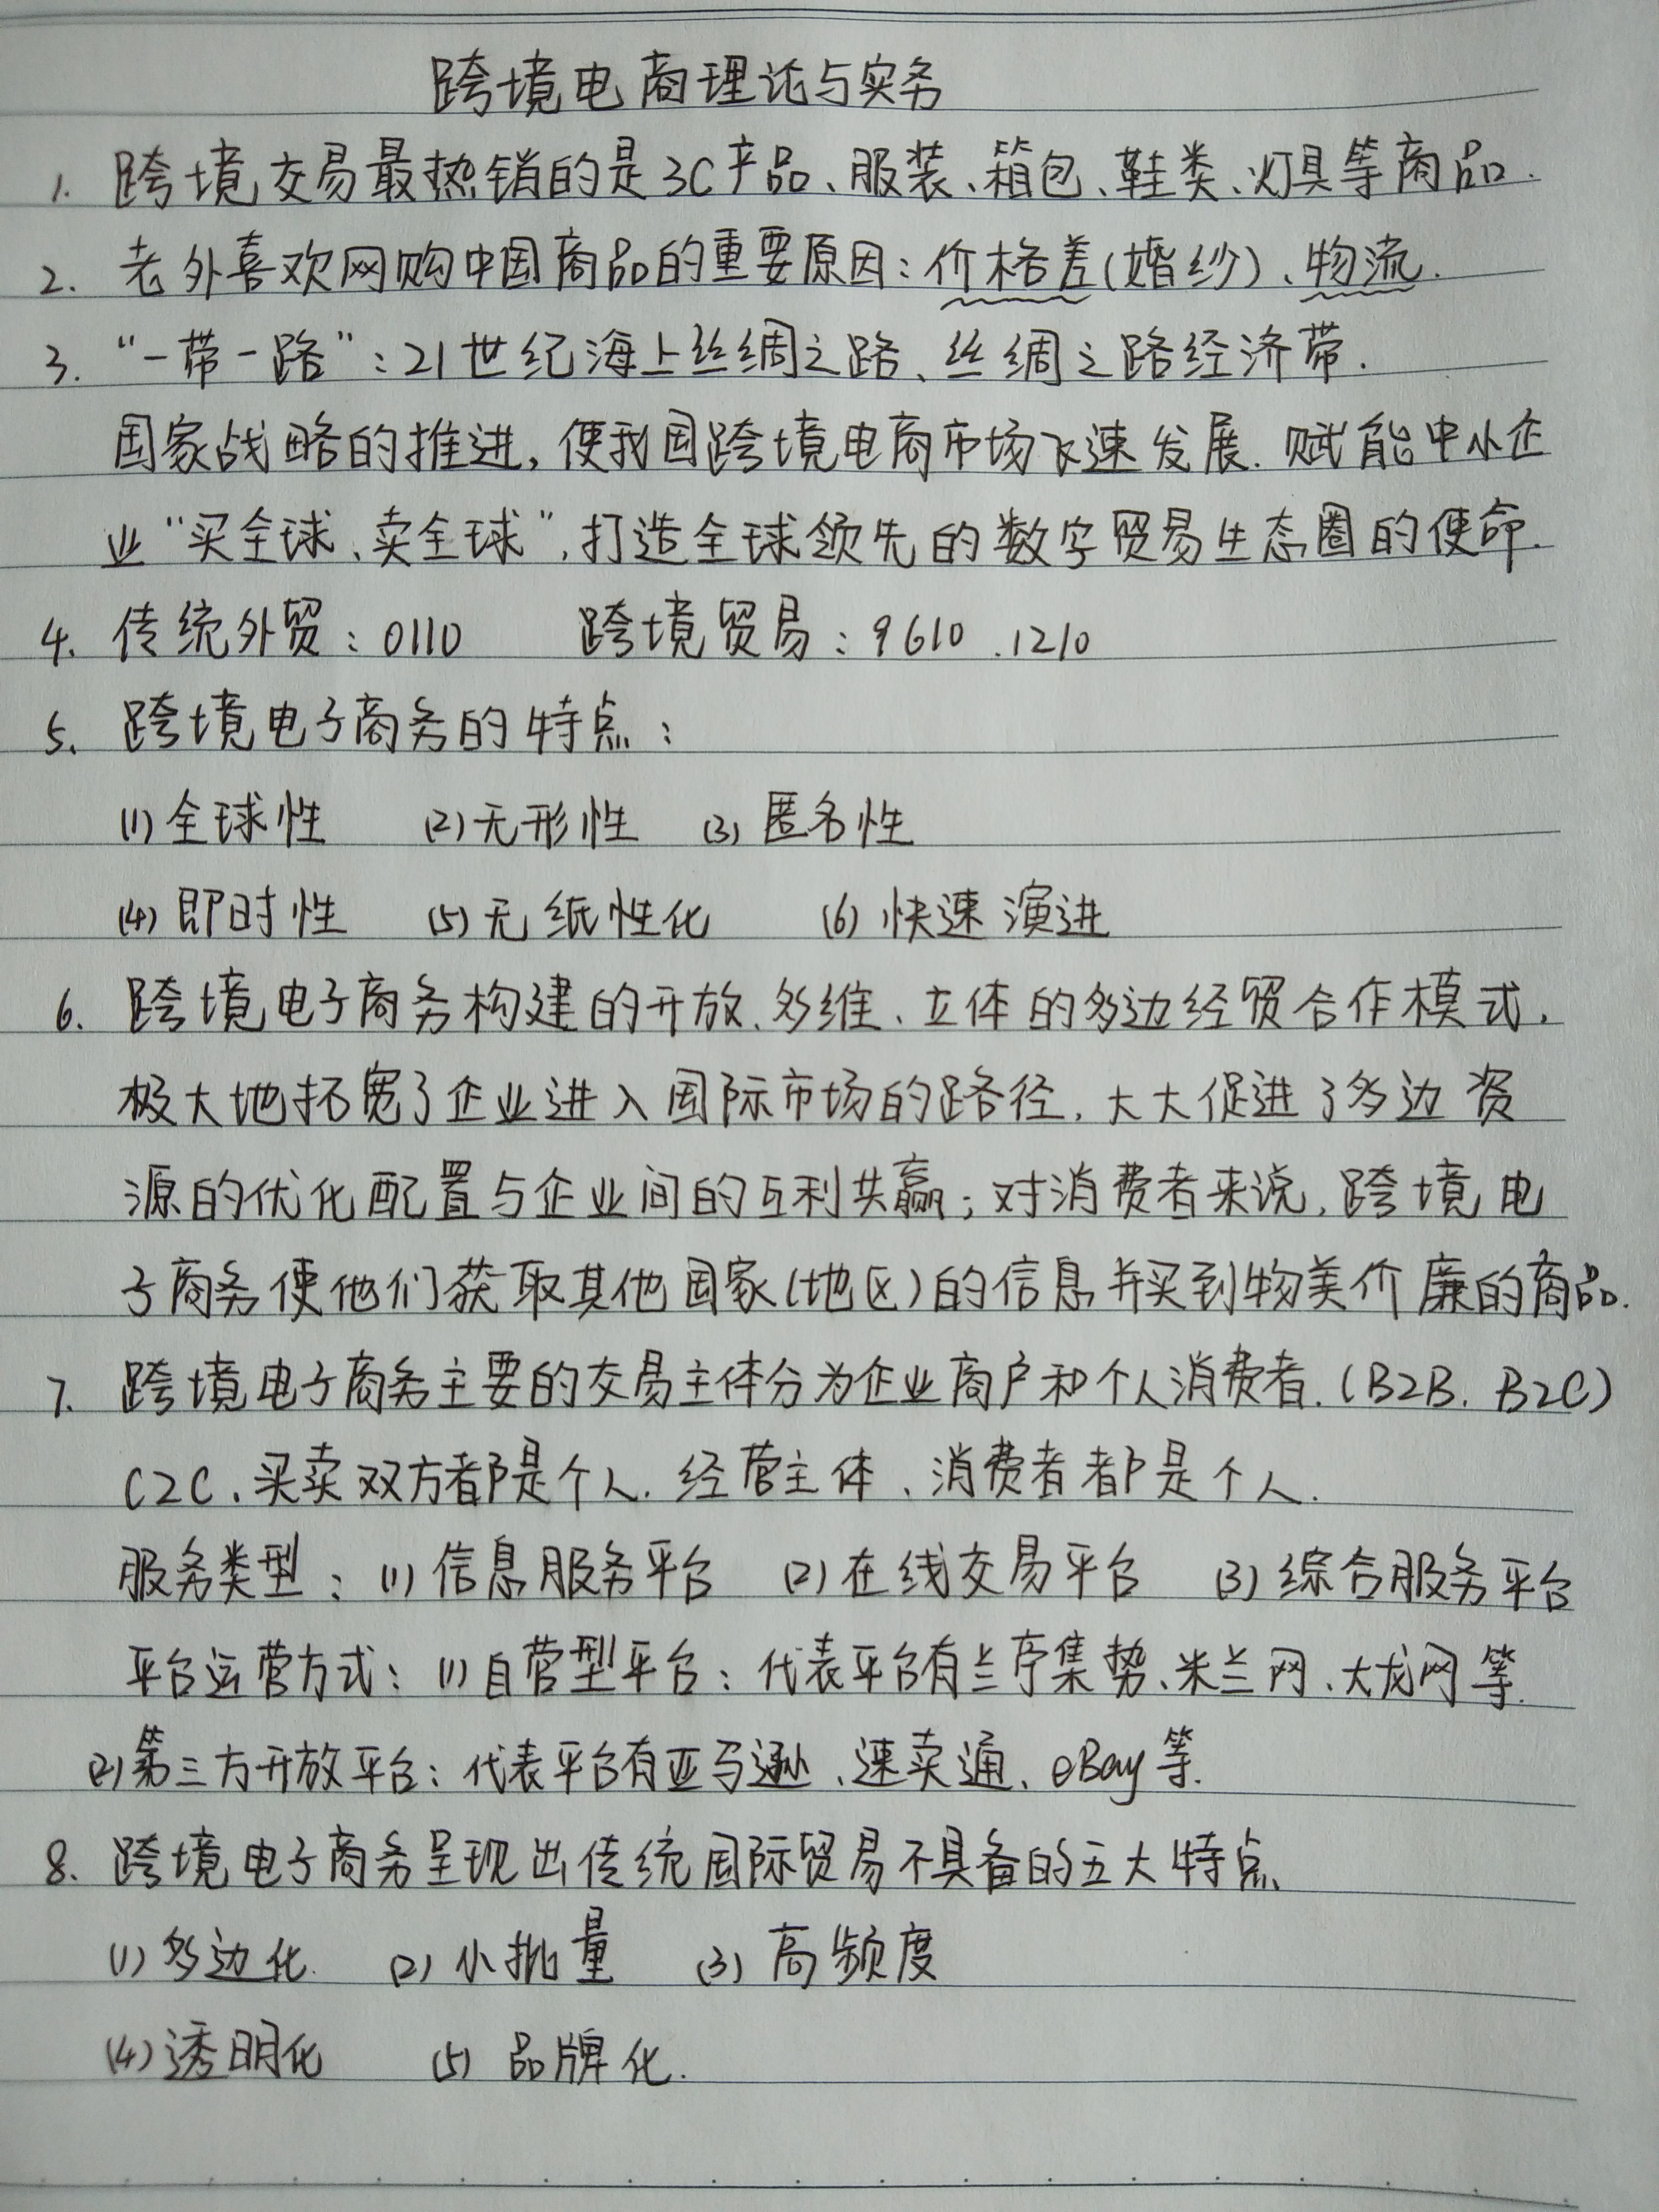 跨境电商理论与实务
1. 跨境交易最热销的是3C产品、服装、箱包、鞋类、灯具等商品.
2. 老外喜欢网购中国商品的重要原因：价格差(婚纱)、物流.
3. “一带一路”：21世纪海上丝绸之路、丝绸之路经济带.
国家战略的推进,使我国跨境电商市场飞速发展.赋能中小企
业“买全球、卖全球”,打造全球领先的数字贸易生态圈的使命.
4. 传统外贸：0110 跨境贸易：9610 .1210
5. 跨境电子商务的特点：
(1)全球性 (2)无形性 (3)匿名性
(4)即时性 (5)无纸性化 (6)快速演进
6. 跨境电子商务构建的开放、多维、立体的多边经贸合作模式,
极大地拓宽了企业进入国际市场的路径,大大促进了多边资
源的优化配置与企业间的互利共赢;对消费者来说,跨境电
子商务使他们获取其他国家(地区)的信息并买到物美价廉的商品.
7. 跨境电子商务主要的交易主体分为企业商户和个人消费者.(B2B. B2C)
C2C、买卖双方都是个人.经营主体、消费者都是个人.
服务类型：(1)信息服务平台 (2)在线交易平台 (3)综合服务平台
平台运营方式：(1)自营型平台：代表平台有兰亭集势、米兰网、大龙网等.
(2)第三方开放平台：代表平台有亚马逊、速卖通、eBay等.
8. 跨境电子商务呈现出传统国际贸易不具备的五大特点
(1)多边化 (2)小批量 (3)高频度
(4)透明化 (5)品牌化.